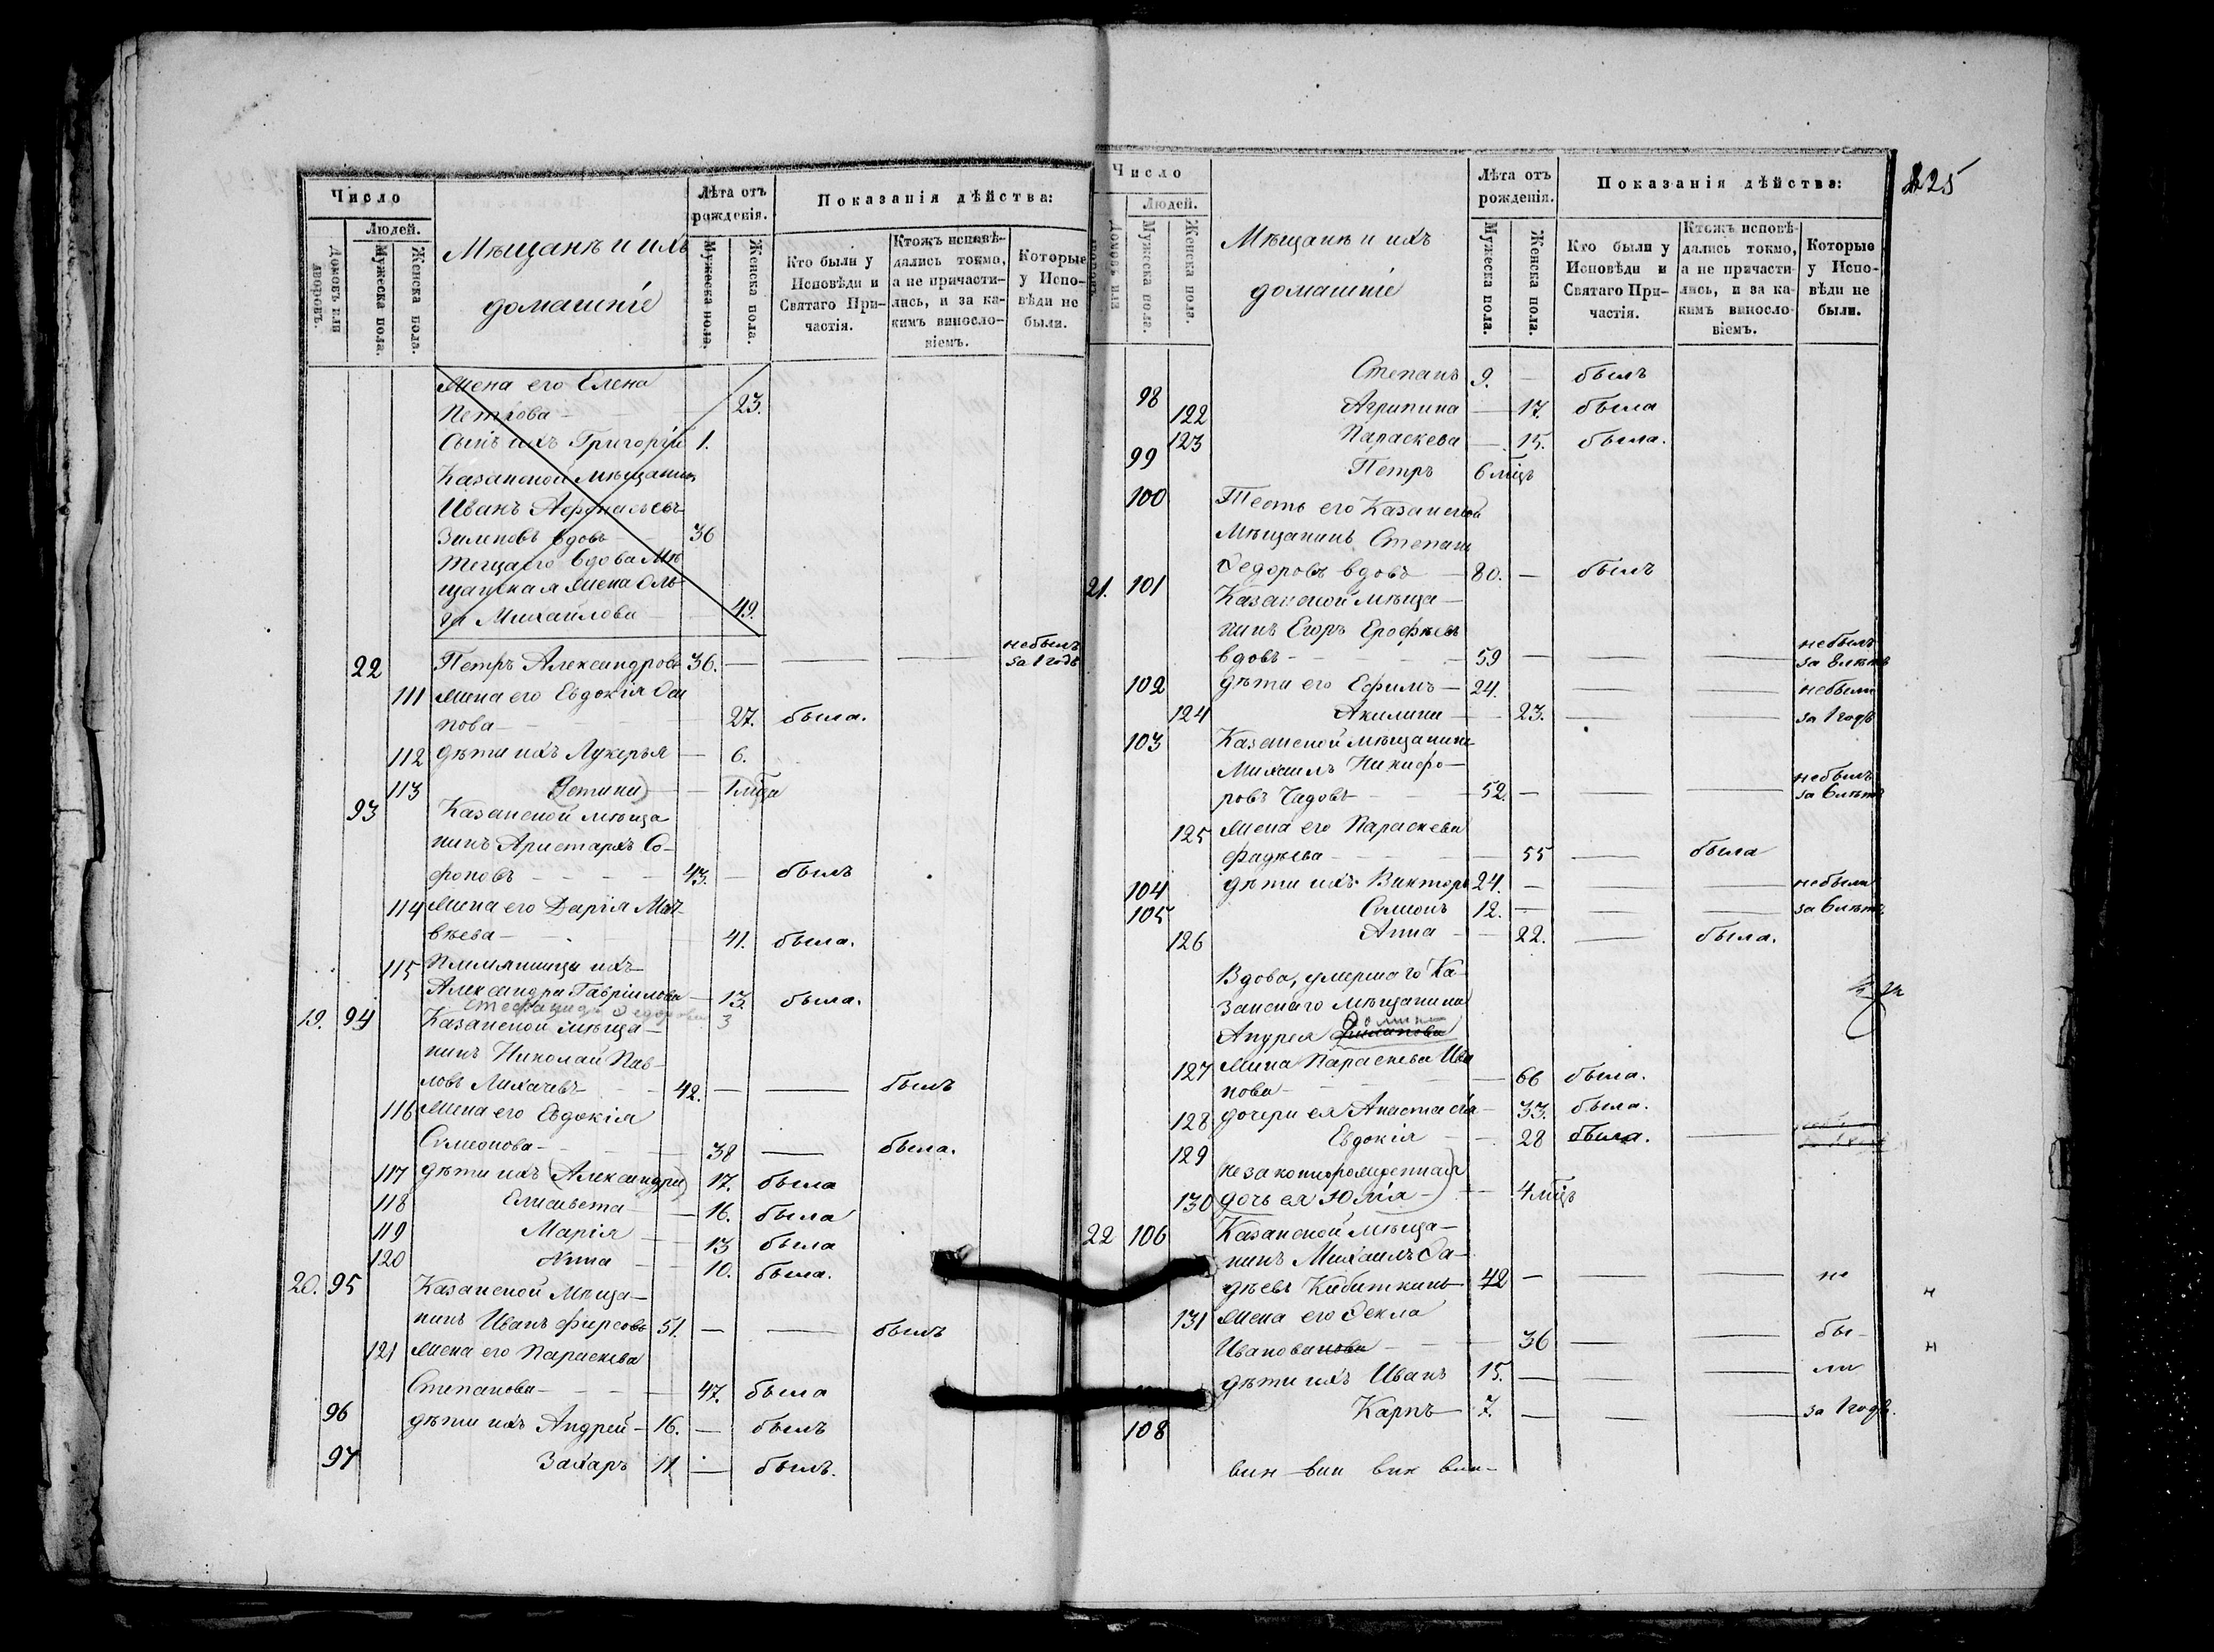 Число
Людей.
Домовъ или дворовъ.
Мужеска пола.
Женска пола.
Мѣщанъ и ихъ
домашніе
Лѣта отъ рожденія.
Мужеска пола.
Женска пола.
Показанія дѣйства:
Кто были у Исповѣди и Святаго Причастія.
Ктожъ исповѣдались токмо, а не причастились, и за какимъ винословіемъ.
Которые у Исповѣди не были.
Жена его Елена
Петрова — 23.
Сынъ ихъ Григорій 1.
Казанской мѣщанинъ
Иванъ Афонасьевъ
вдовъ — 36
теща его вдова Мѣ
щанская жена Оль
га Михайлова — 49.
небылъ
22 Петръ Александровъ 36. — — — за 1 годъ
111 жена его Евдокія Оси
пова — 27. была.
112 дѣти ихъ Лукерья — 6.
113 (Устинія) — 1 мѣца
93 Казанской мѣща
нинъ Аристархъ Со-
фоновъ — 43. — былъ
114 жена его Дарія Мат-
вѣева — 41. была.
115 Племянница ихъ
Александра Гавріилова — 13 была.
Стефанида Федорова 3
19. 94 Казанской мѣща-
нинъ Николай Пав-
ловъ Лихачевъ — 42. — — былъ
116 жена его Евдокія
Симеонова — 38 — была.
117 дѣти ихъ (Александра) 17. была
118 Елисавета — 16. была
119 Марія — 13 была
120 Анна — 10. была.
20. 95 Казанской мѣща-
нинъ Иванъ Фирсовъ 51. — — былъ
121 жена его Параскева
Степанова — 47. была
96 дѣти ихъ Андрей — 16. — былъ
97 Захаръ 11 — былъ.
225
Число
Людей.
Домовъ или дворовъ.
Мужеска пола.
Женска пола.
Мѣщанъ и ихъ
домашніе
Лѣта отъ рожденія.
Мужеска пола.
Женска пола.
Показанія дѣйства:
Кто были у Исповѣди и Святаго Причастія.
Ктожъ исповѣдались токмо, а не причастились, и за какимъ винословіемъ.
Которые у Исповѣди не были.
98 Степанъ 9. — былъ
122 Агрипина — 17. была
123 Параскева — 15. была.
99 Петръ 6 мѣцъ
100 Тесть его Казанской
Мѣщанинъ Степанъ
Федоровъ вдовъ — 80. — былъ
21. 101 Казанской мѣща-
нинъ Егоръ Ерофѣевъ
небылъ
вдовъ — 59 — — — за 8 лѣтъ
102 дѣти его Ефимъ — 24. — — небыли
124 Акилина — 23. — — за 1 годъ
103 Казанской мѣщанинъ
Михаилъ Никифо-
небылъ
ровъ Чадовъ — 52. — — — за 6 лѣтъ
125 жена его Параскева
Фадѣева — 55 — была
104 дѣти ихъ Викторъ 24. — — небыли
105 Симеонъ 12. — — — за 6 лѣтъ
126 Анна — 22. — была.
Вдова, умершаго Ка-
занскаго мѣщанина
Андрея
127 жена Параскева Ива
нова — 66 была.
128 дочери ея Анастасія — 33. была.
129 Евдокія — 28 была. —
(незаконнорожденная
130 дочь ея Юлія —) — 4 мѣцъ
22 106 Казанской мѣща-
нинъ Михаилъ Фа-
дѣевъ Кибиткинъ — 42 — — — не
131 жена его Фекла
Иванова — 36 — — бы-
дѣти ихъ Иванъ 15. — — ли
108 Карпъ — 7. — — — за 1 годъ.
вин вин вин вин-
н
н